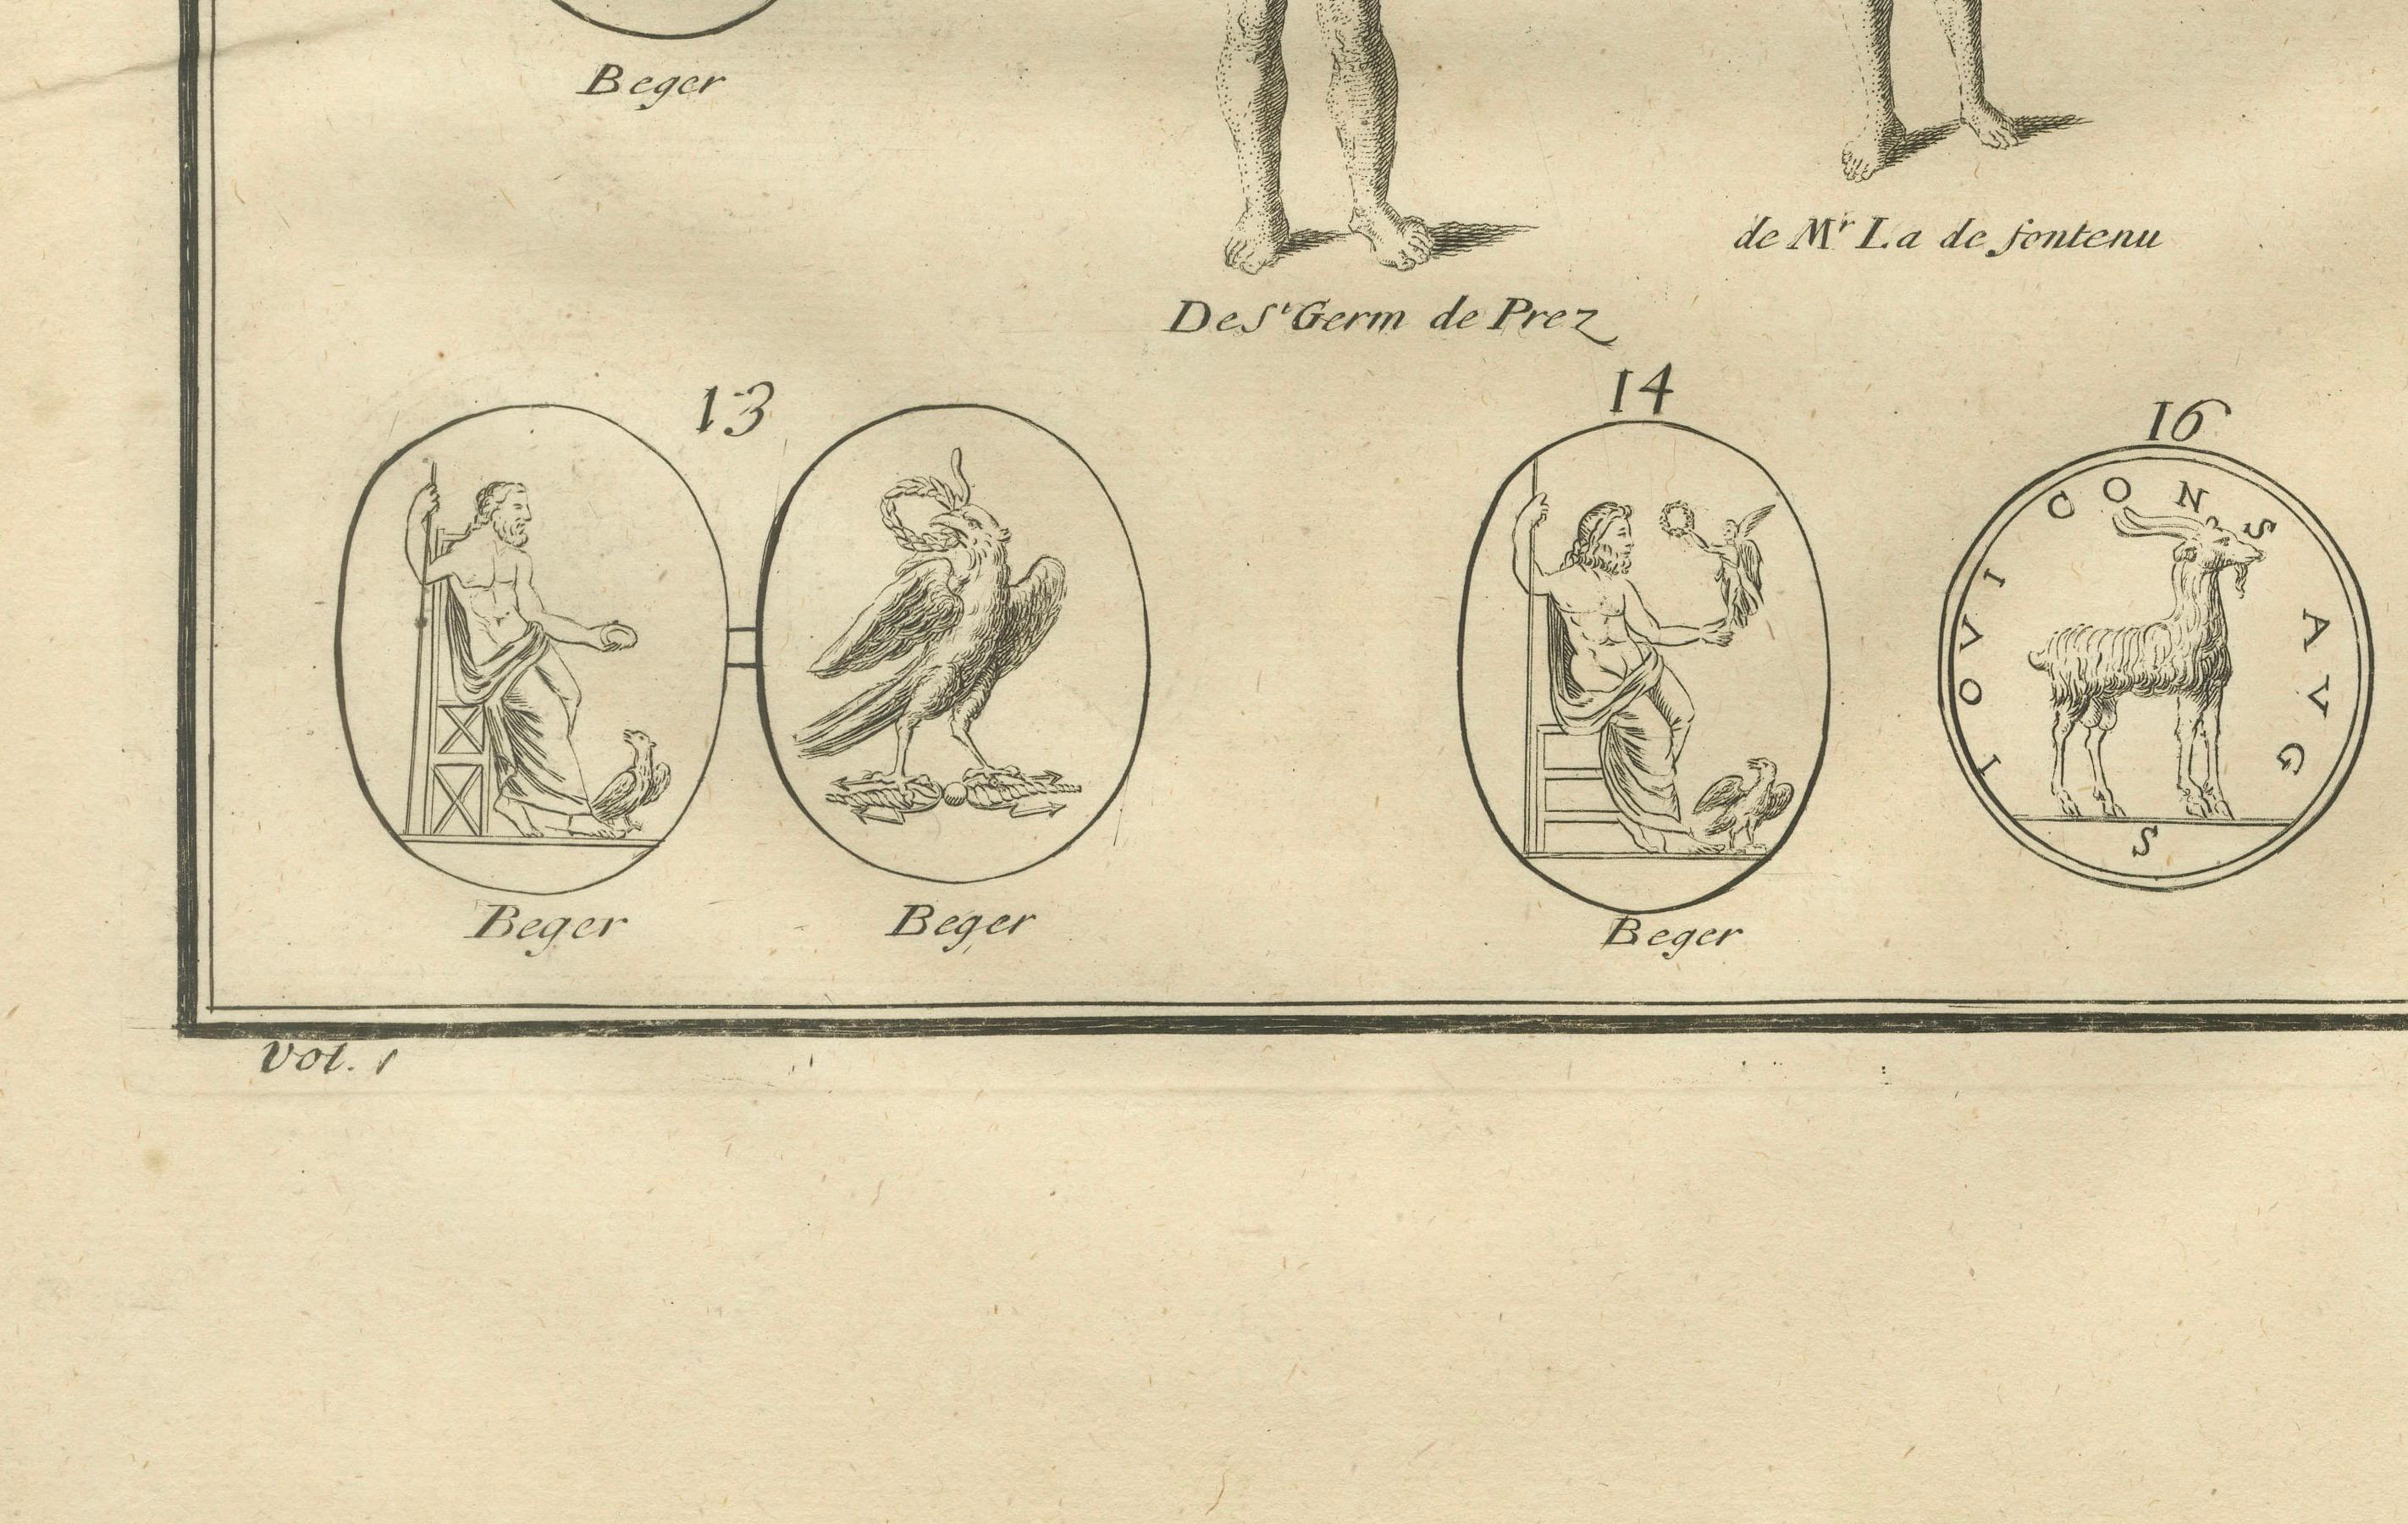 Beger
de Mr La de fontenu
De St Germ de Prez
13
14
16
IOVI CONS AVG
S
Beger
Beger
Beger
Vol. 1